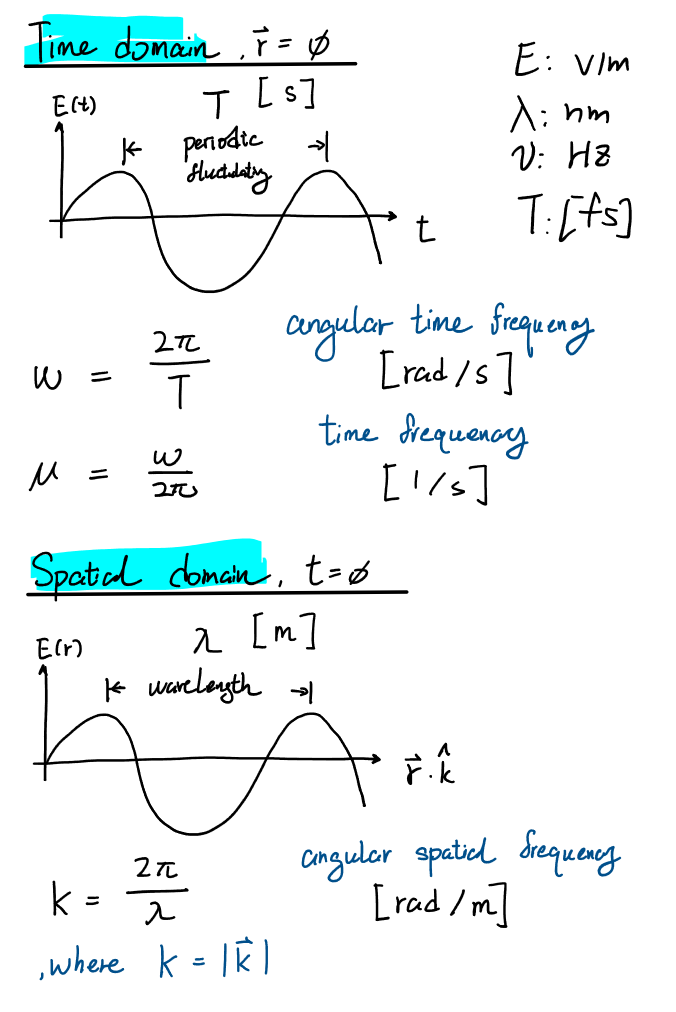 Time domain, r⃗ = ∅
E: V/m
λ: nm
ν: Hz
T: [fs]
T [s]
E(t)
periodic
fluctuating
t
ω = 2π/T
angular time frequency
[rad/s]
μ = ω/2π
time frequency
[1/s]
Spatial domain, t=∅
λ [m]
E(r)
wavelength
r⃗ · k̂
k = 2π/λ
angular spatial frequency
[rad/m]
, where k = |k⃗|